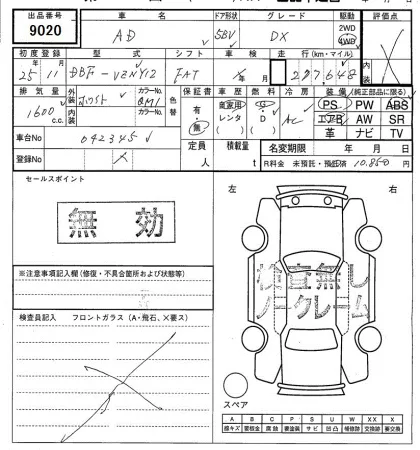 出品番号 車名 ドア形状 グレード 駆動 評価点
9020 AD 5BV DX 2WD 4WD
初度登録 型式 シフト 車検 走行(km・マイル) 内装
25年11月 DBF-VZNY12 FAT 年 月 207648
排気量 外装 ホワイト カラーNo. QM1 色替 保証書 車歴 燃料 冷房 装備(純正部品に限る)
1600 c.c. 内装 カラーNo. 有・無 自家用 レンタ G・D AC PS PW ABS
エアB AW SR
革 ナビ TV
車台No 042345
登録No 定員 人 積載量 t 名変期限 年 月 日
R料金 未預託・預託済 10,850円
セールスポイント
無効
左 右
検査無し
ノークレーム
※注意事項記入欄(修復・不具合箇所および状態等)
検査員記入 フロントガラス(A・飛石、X要ス)
スペア
A B C P S U W X XX
線キズ 要板金 腐蝕 要塗装 サビ 凹凸 補修跡 交換跡 要交換